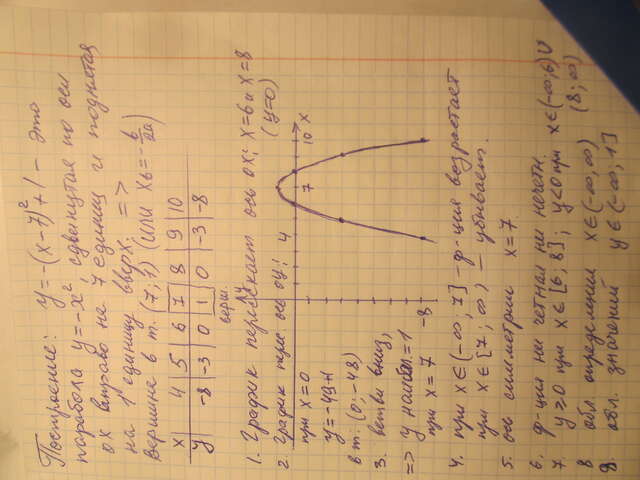 Построение: y=-(x-7)²+1 - это
парабола y=-x², сдвинутая по оси
ОХ вправо на 7 единиц и поднятая
на 1 единицу вверх. =>
вершина в т. (7; 1) (или x_в = -b/2a)
x | 4 | 5 | 6 | 7 | 8 | 9 | 10
y | -8 | -3 | 0 | 1 | 0 | -3 | -8
верш.
1. График пересекает ось ОХ: x=6 и x=8
(y=0)
2. График перес. ось ОУ:
при x=0
y=-49+1
в т. (0; -48)
y
4
7
10
x
-8
3. ветви вниз,
=> y наибол.=1
при x=7
4. при x∈(-∞; 7] - ф-ция возрастает
при x∈[7; ∞) - убывает.
5. ось симметрии x=7.
6. ф-ция ни четная ни нечетн.
7 y≥0 при x∈[6, 8]; y<0 при x∈(-∞; 6)∪
(8; ∞)
8 обл. определения x∈(-∞, ∞)
9. обл. значений y∈(-∞; 1]